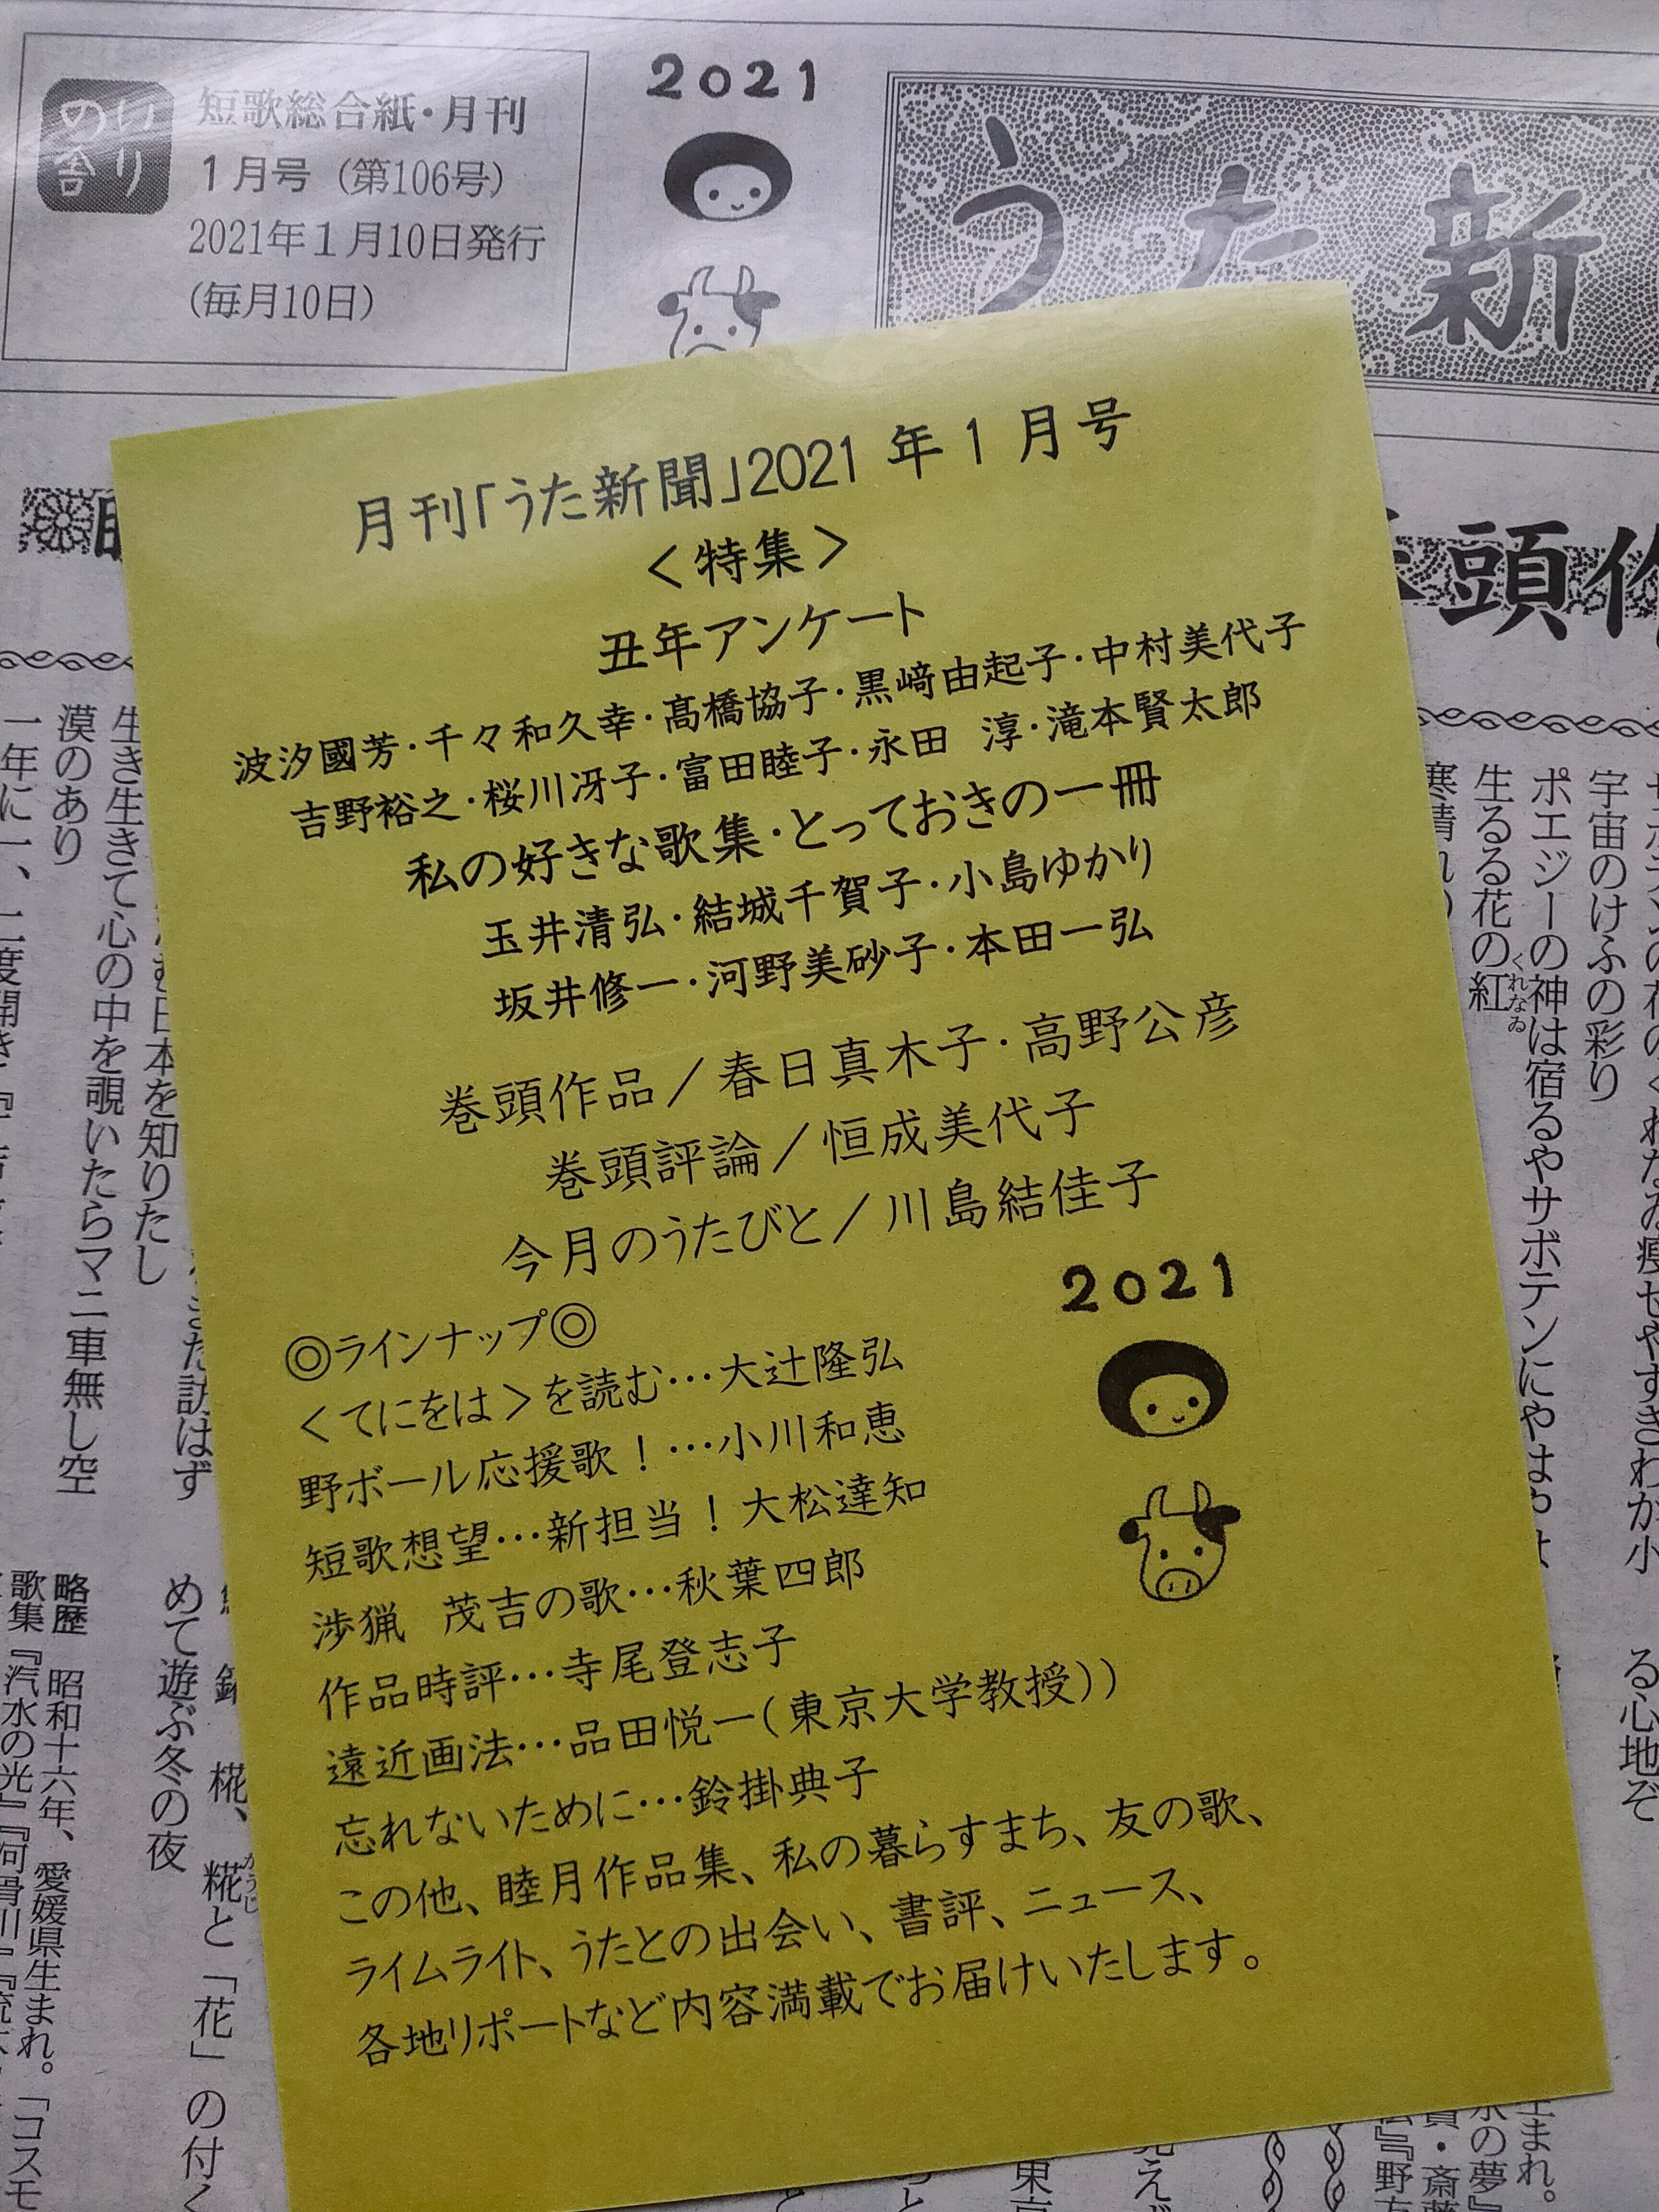 いりの舎
短歌総合紙・月刊
1月号（第106号）
2021年1月10日発行
（毎月10日）
2021
うた新
月刊「うた新聞」2021年1月号
＜特集＞
丑年アンケート
波汐國芳・千々和久幸・髙橋協子・黒﨑由起子・中村美代子
吉野裕之・桜川冴子・富田睦子・永田　淳・滝本賢太郎
私の好きな歌集・とっておきの一冊
玉井清弘・結城千賀子・小島ゆかり
坂井修一・河野美砂子・本田一弘
巻頭作品／春日真木子・高野公彦
巻頭評論／恒成美代子
今月のうたびと／川島結佳子
2021
◎ラインナップ◎
＜てにをは＞を読む…大辻隆弘
野ボール応援歌！…小川和恵
短歌想望…新担当！大松達知
渉猟　茂吉の歌…秋葉四郎
作品時評…寺尾登志子
遠近画法…品田悦一(東京大学教授))
忘れないために…鈴掛典子
この他、睦月作品集、私の暮らすまち、友の歌、
ライムライト、うたとの出会い、書評、ニュース、
各地リポートなど内容満載でお届けいたします。
頭作
宇宙のけふの彩り
ポエジーの神は宿るやサボテンにやはや
生るる花の紅
くれなゐ
る心地ぞ
日本を知りたし
生き生きて心の中を覗いたらマニ車無し空
漠のあり
一年に一、二度開き
た訪はず
糀、糀と「花」の付く
かうじ
めて遊ぶ冬の夜
略歴　昭和十六年、愛媛県生まれ。「コスモ
歌集『汽水の光』『河骨川』